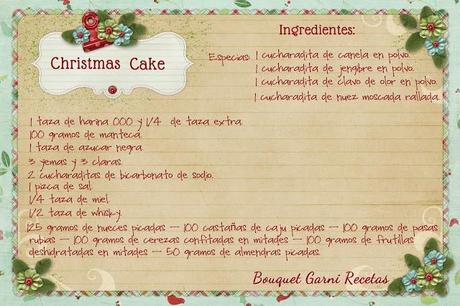 Christmas Cake
Ingredientes:
Especias: 1 cucharadita de canela en polvo.
1 cucharadita de jengibre en polvo.
1 cucharadita de clavo de olor en polvo.
1 cucharadita de nuez moscada rallada.
1 taza de harina 000 y 1/4 de taza extra.
100 gramos de manteca.
1 taza de azucar negra.
3 yemas y 3 claras.
2 cucharaditas de bicarbonato de sodio.
1 pizca de sal.
1/4 taza de miel.
1/2 taza de whisky.
125 gramos de nueces picadas -- 100 castañas de caju picadas -- 100 gramos de pasas
rubias -- 100 gramos de cerezas confitadas en mitades -- 100 gramos de frutillas
deshidratadas en mitades -- 50 gramos de almendras picadas.
Bouquet Garni Recetas